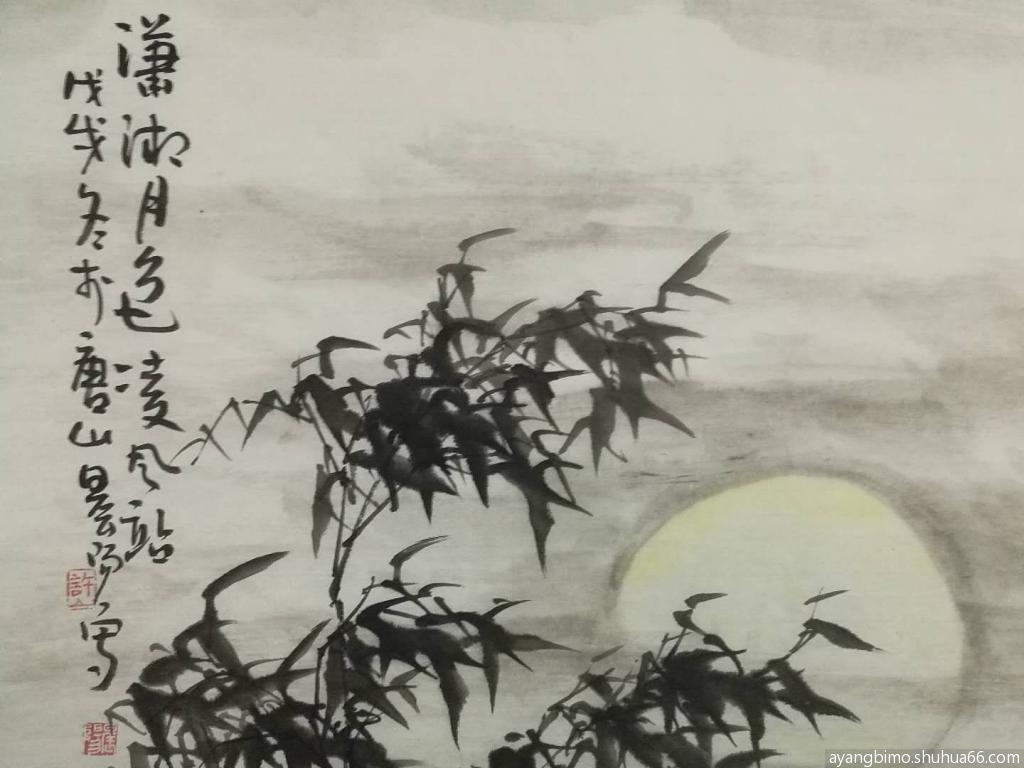 瀟湘月色凌风
戊戌冬于唐山昙阳写
許
ayangbimo.shuhua66.com